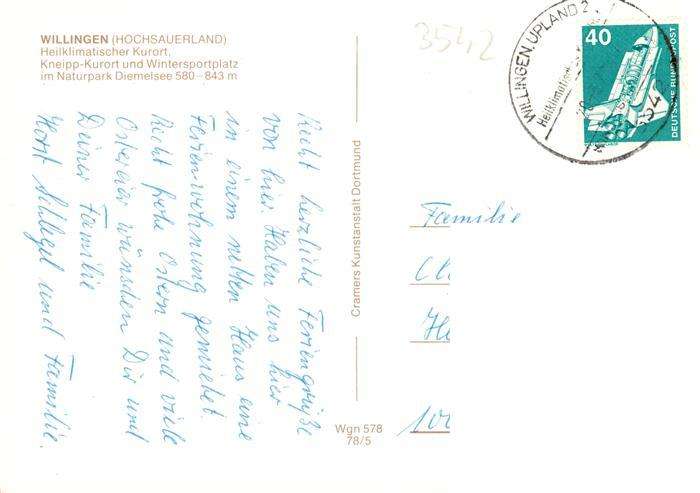 WILLINGEN (HOCHSAUERLAND)
Heilklimatischer Kurort,
Kneipp-Kurort und Wintersportplatz
im Naturpark Diemelsee 580–843 m
3542
WILLINGEN, UPLAND 2
Heilklimatisch
40
DEUTSCHE BUNDESPOST
Recht herzliche Feriengrüße
von hier. Haben uns hier
in einem netten Haus eine
Ferienwohnung gemietet.
Recht frohe Ostern und viele
Ostereier wünschen Dir und
Deiner Familie
Horst Schlegel und Familie.
Cramers Kunstanstalt Dortmund
Wgn 578
78/5
Familie